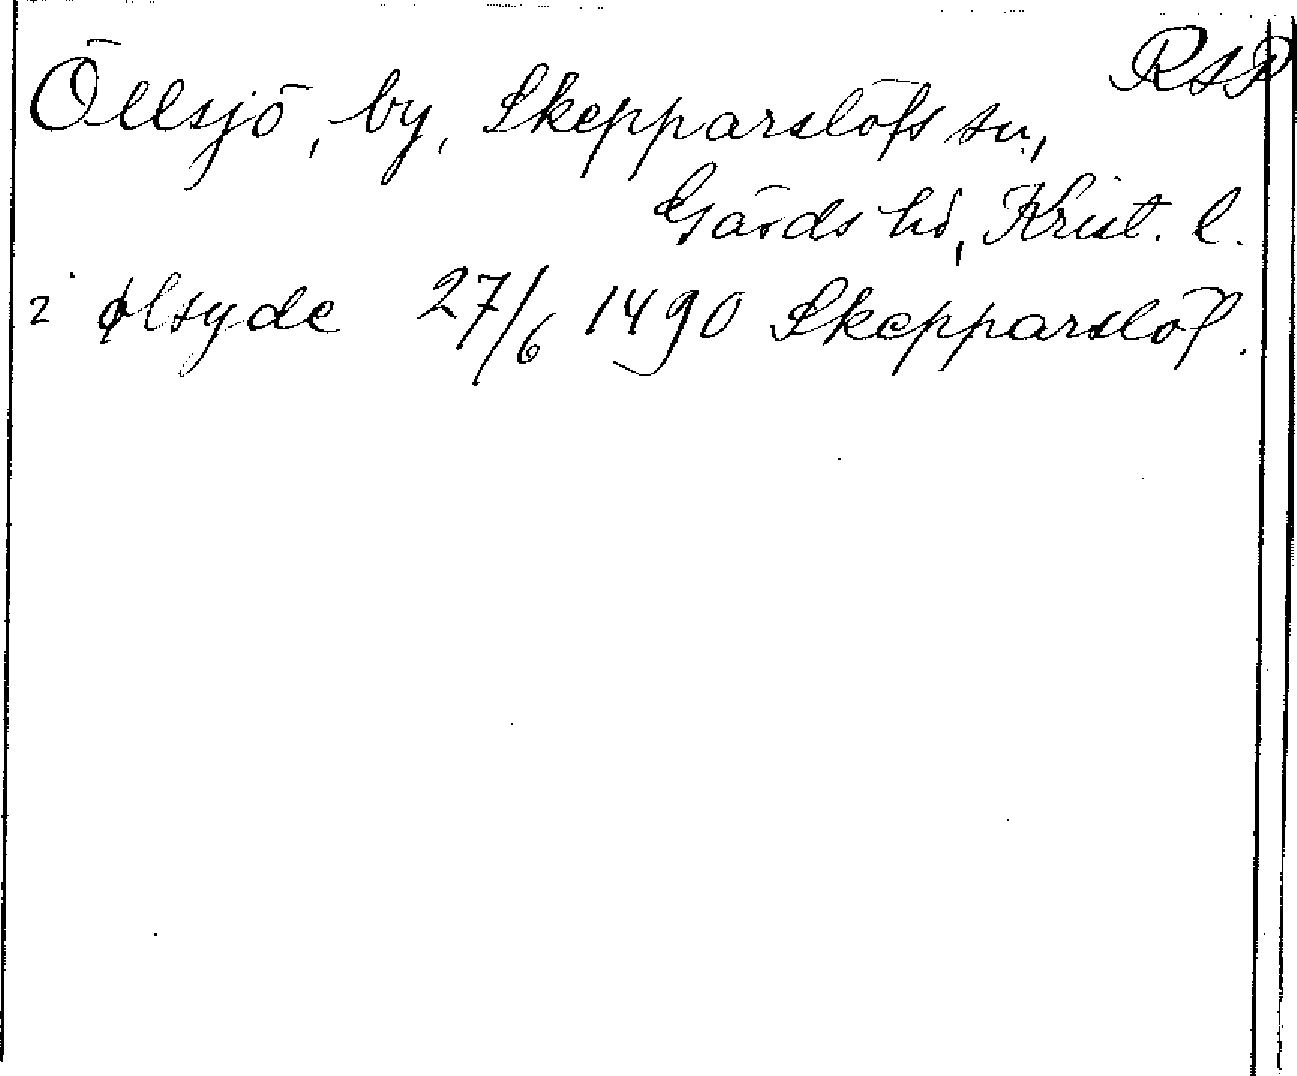 RAP
Öllsjö, by, Skepparslöfs sn,
Gärds hd, Krist. l.
i ølsyde 27/6 1490 Skepparslöf.